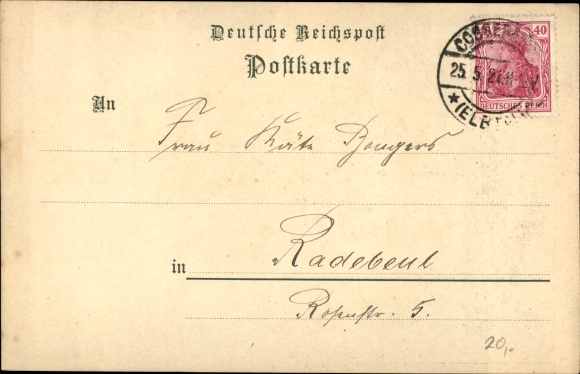 Deutsche Reichspost
Postkarte
40
DEUTSCHES REICH
25.5.21.
An
Frau Käte Bongers
in Radebeul
Rosenstr. 5.
20,-